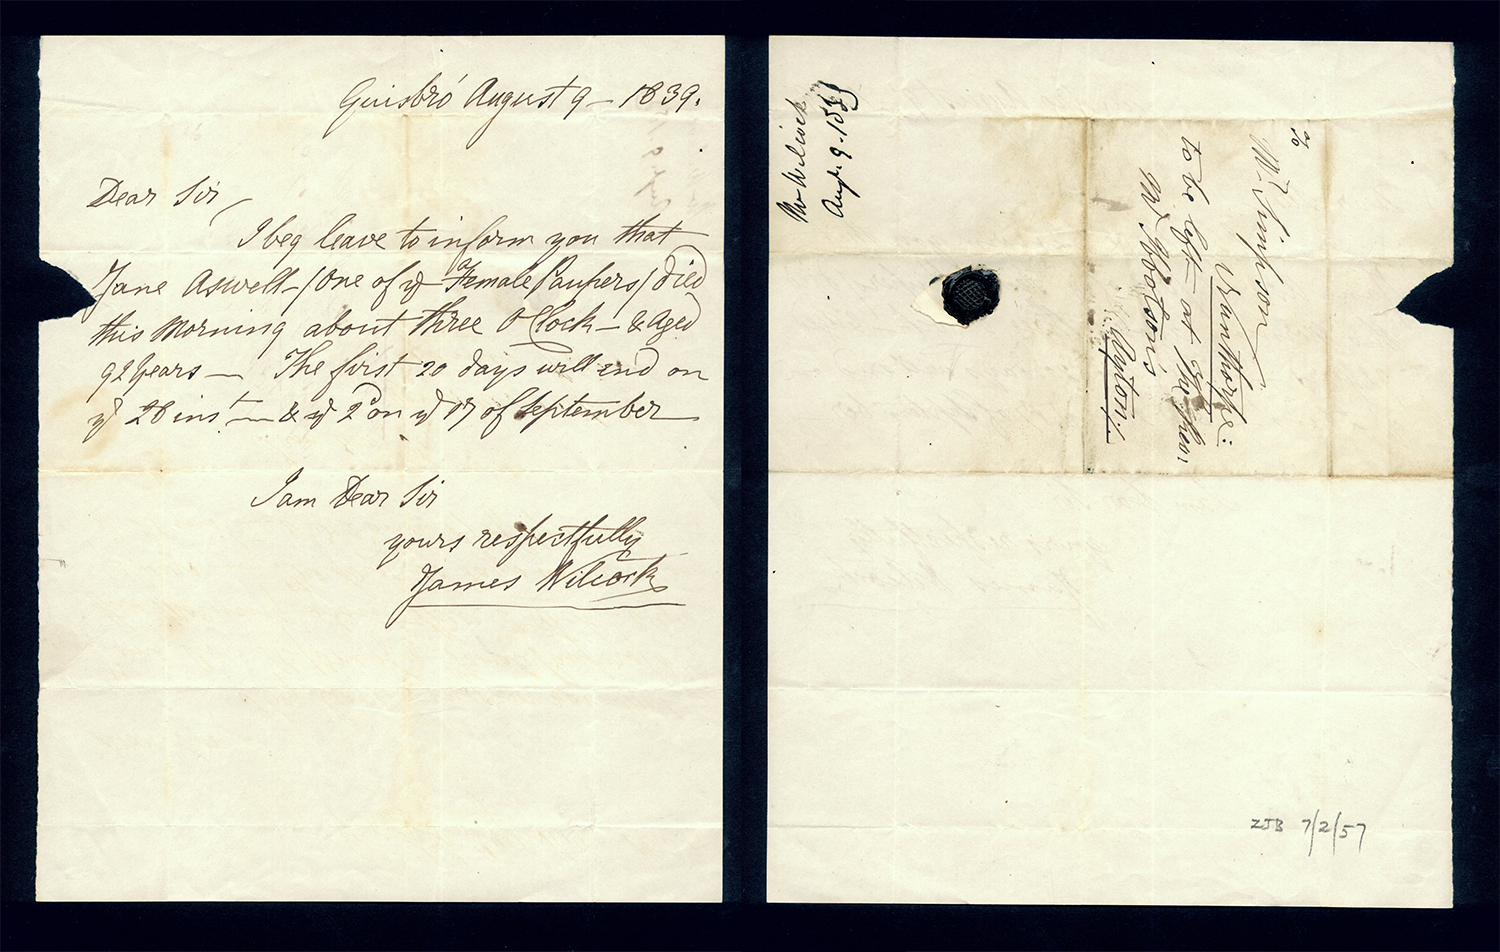 Guisbro' August 9 – 1839.
Dear Sir,
I beg leave to inform you that
Jane Aswell – (One of ye Female Paupers) died
this Morning about three O Clock – & Aged
92 Years — The first 20 days will end on
ye 28 inst — & ye 2d on ye 17 of September
I am Dear Sir
yours respectfully
James Wilcock
Mr Wilcock
Augt 9. 1839
Mr Simpson
Nunthorpe:
to be left at Mr
Mr
Ayton:
ZJB 7/2/57